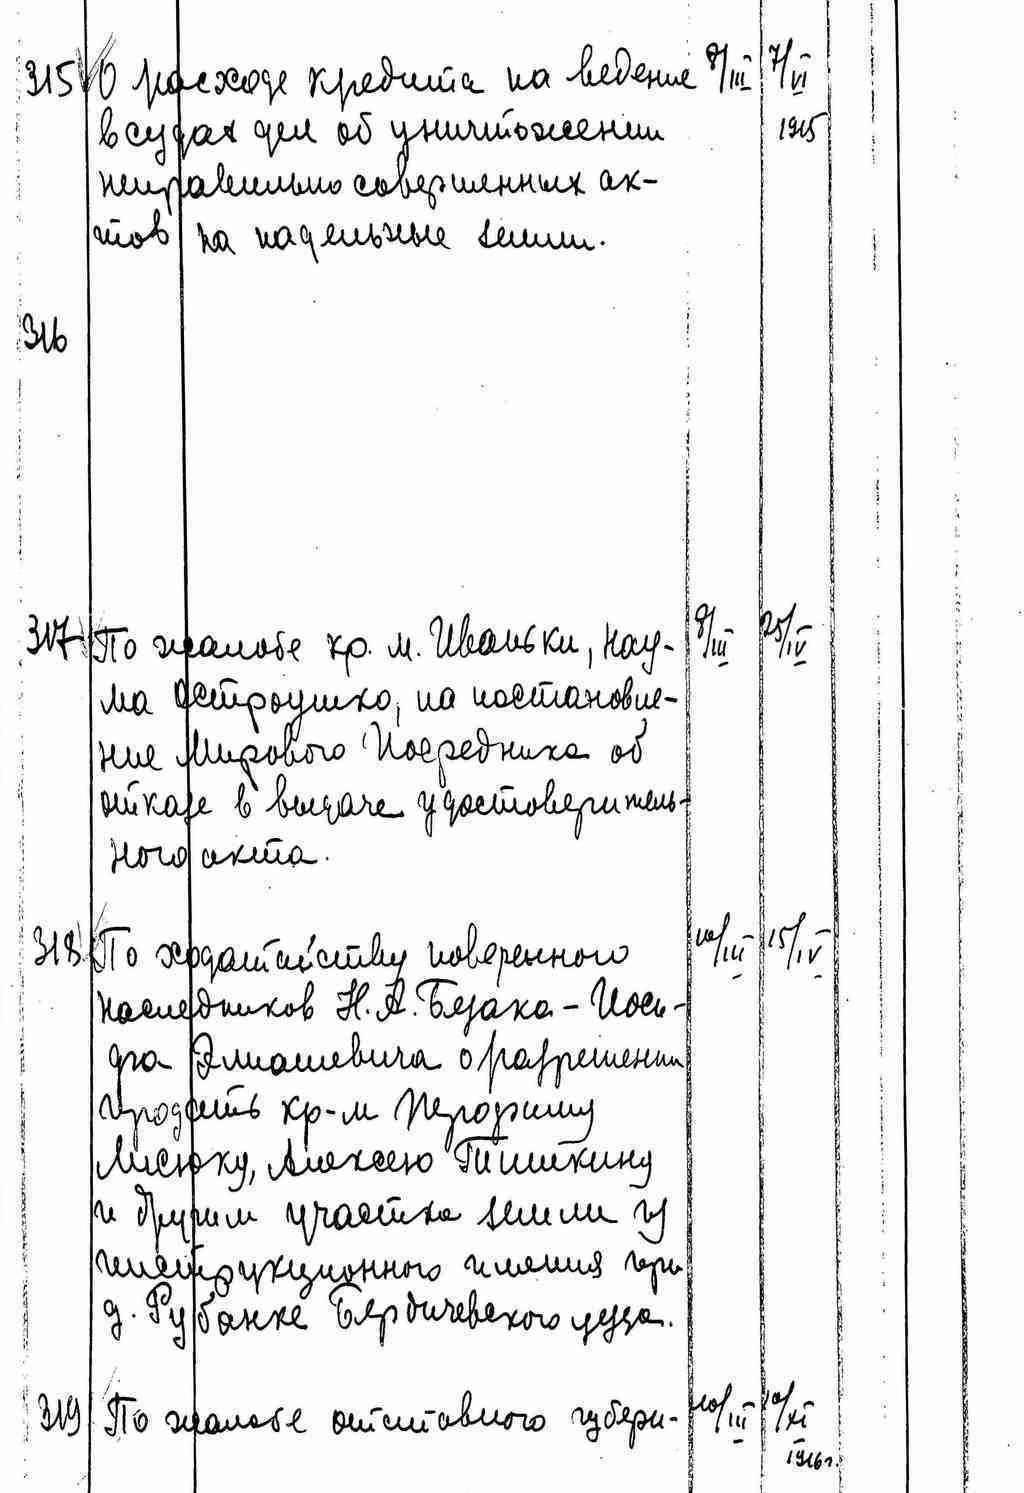 315 О расходе кредита на ведение 8/III 7/VI
в судах дел об уничтожении 1915
неправильно совершенных ак-
тов на надельные земли.
316
317 По жалобе кр. м. Иваньки, Нау- 8/III 25/IV
ма Остроушко, на постановле-
ние Мирового Посредника об
отказе в выдаче удостоверитель-
ного акта.
318 По ходатайству поверенного 10/III 15/IV
наследников Н.А. Безака - Иоси-
фа Элиашевича о разрешении
продать кр-м Порфирию
Лисюку, Алексею Тишкину
и другим участка земли из
инструкционного имения при
д. Рубанке Бердичевского уезда.
319 По жалобе отставного губерн- 10/III 10/XI
1916 г.